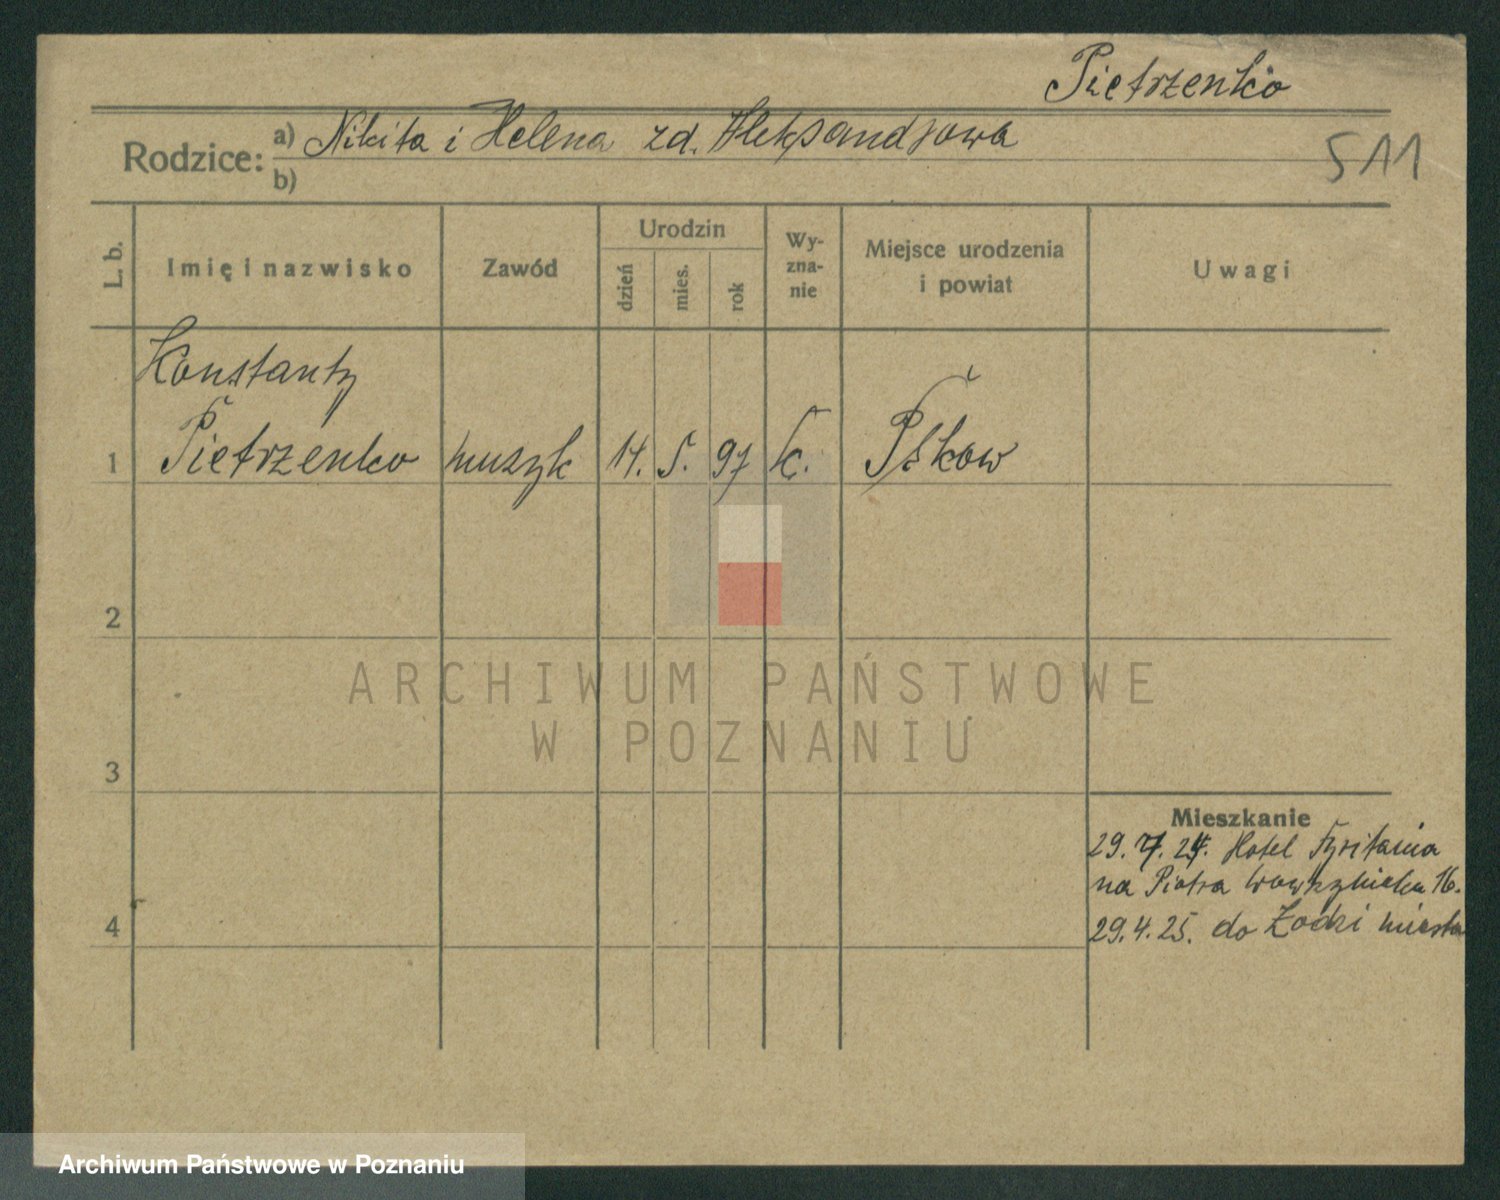 Pietrzenko
Rodzice: a) Nikita i Helena zd. Aleksandrowa
b)
511
L. b.
Imię i nazwisko
Zawód
Urodzin
dzień
mies.
rok
Wy-
zna-
nie
Miejsce urodzenia
i powiat
Uwagi
Konstanty
1 Pietrzenko muzyk 14. 5. 97 k. Pskow
2
ARCHIWUM PAŃSTWOWE
W POZNANIU
3
Mieszkanie
29. 7. 24. Hotel
na Piotra Wawrzyniaka 16.
4
29. 4. 25. do Łodzi miasta
Archiwum Państwowe w Poznaniu